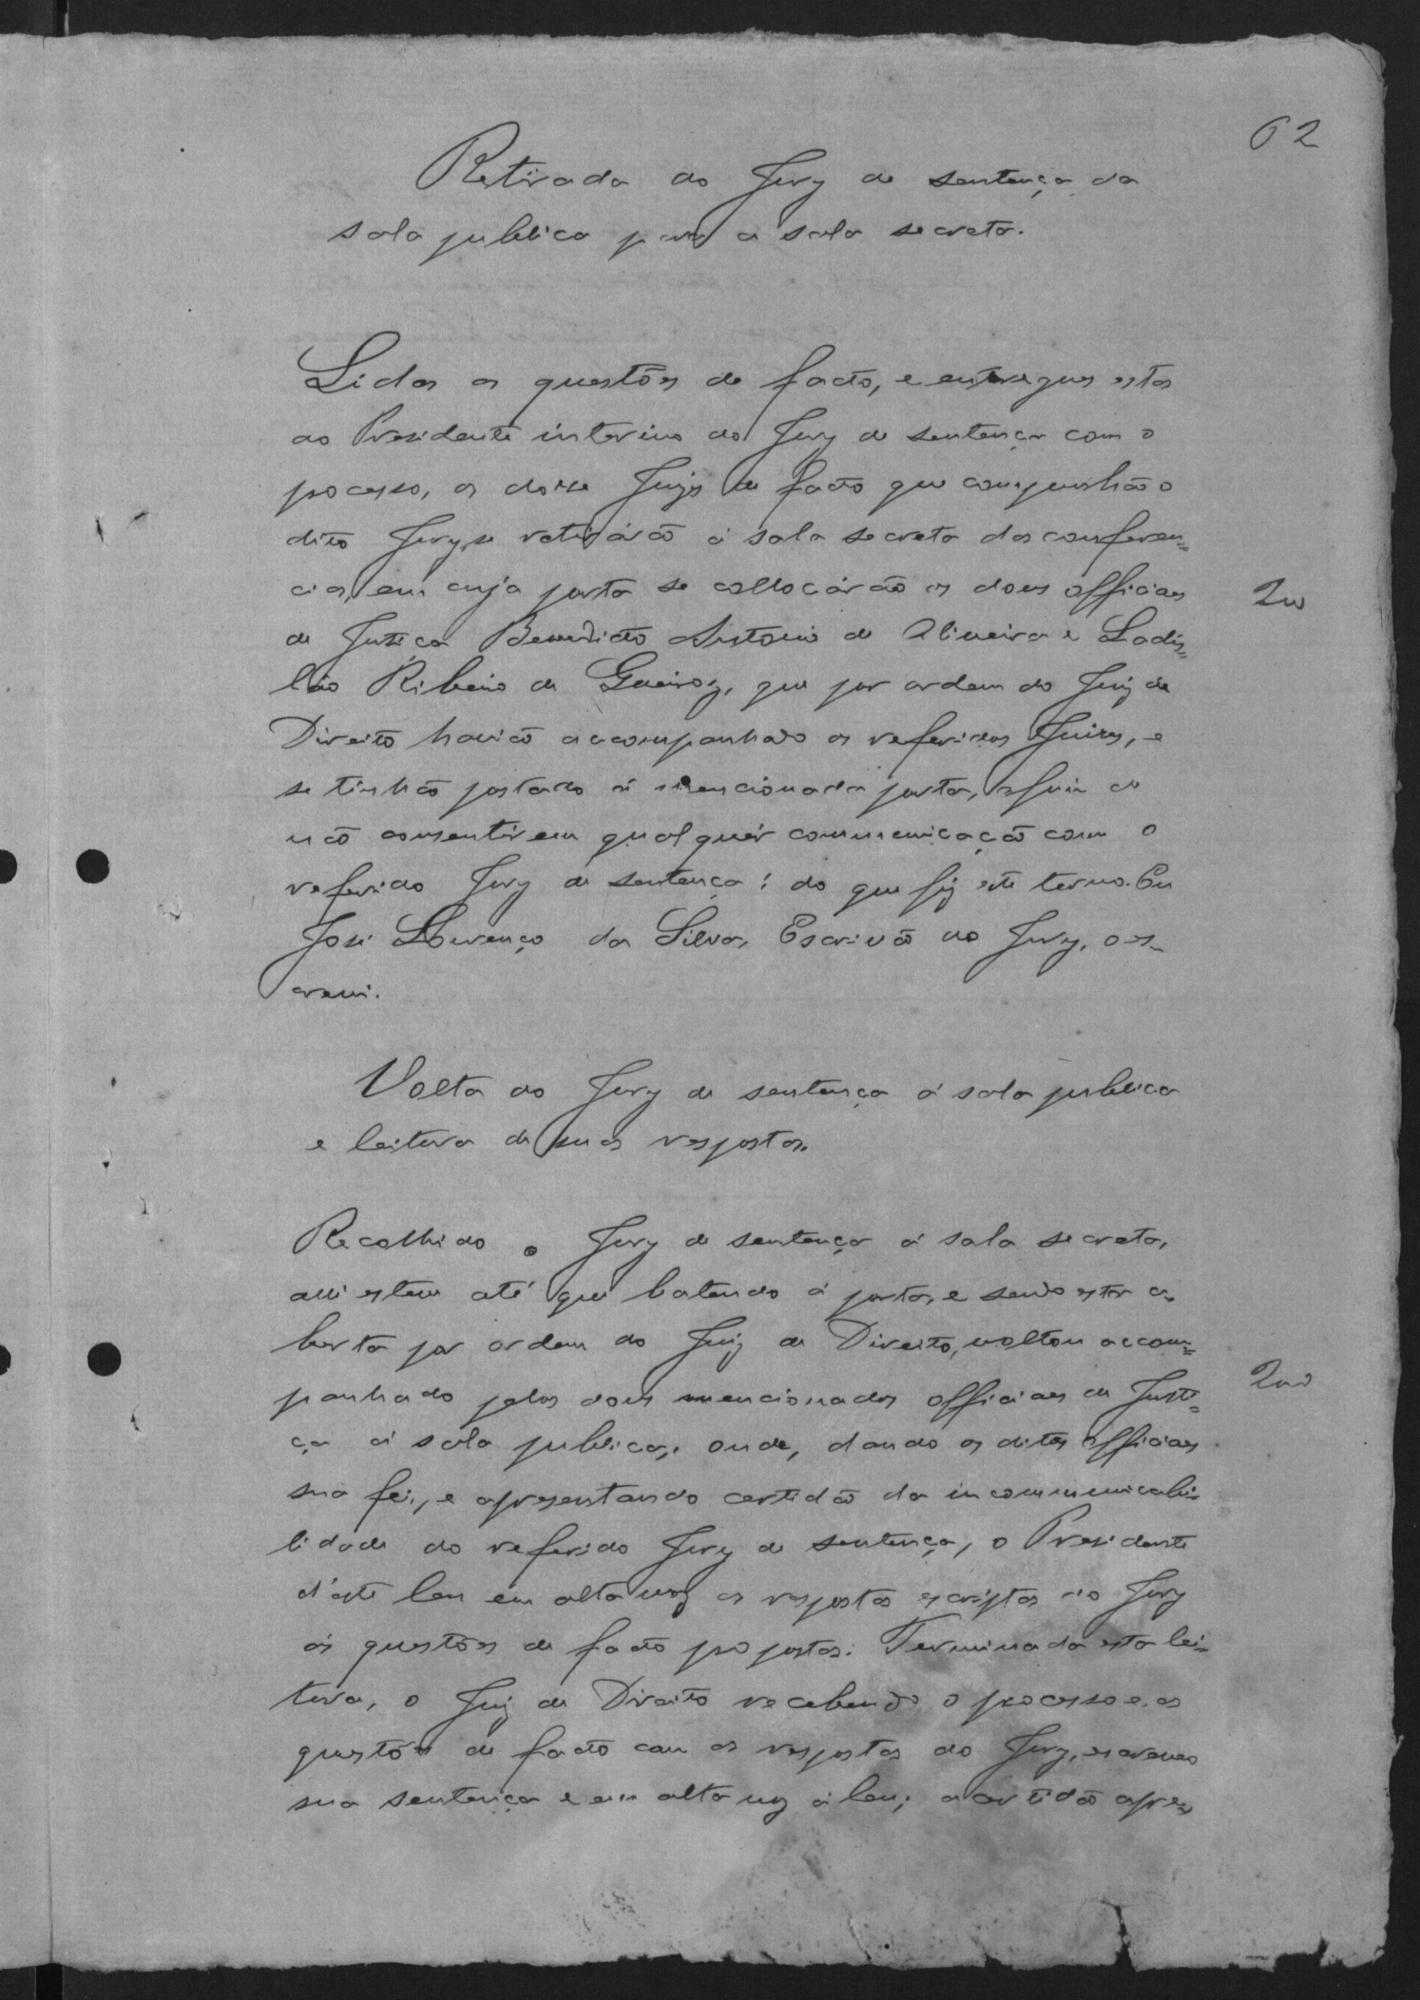 62
Retirada do Jury de sentença da
sala publica para a sala secreta.
Lidas as questões de facto, e entregues estas
ao Presidente interino do Jury de sentença com o
processo, os doze Juizes de facto que compunhão o
dito Jury, se retirárão á sala secreta das conferen=
cias, em cuja porta se collocárão os dous officiaes
de Justiça Benedicto Antonio de Oliveira e Ladis=
láo Ribeiro de Queiroz, que por ordem do Juiz de
Direito havião accompanhado os referidos Juizes, e
se tinhão postado á mencionada porta, afim de
não consentirem qualquér communicação com o
referido Jury de sentença; do que fiz este termo. Eu
José Lourenço da Silva, Escrivão do Jury, o es-
crevi.
Volta do Jury de sentença á sala publica
e leitura de suas respostas.
Recolhido o Jury de sentença á sala secreta,
alli esteve até que batendo á porta, e sendo esta a-
berta por ordem do Juiz de Direito, voltou accom=
panhado pelos dous mencionados officiaes de Justi=
ça á sala publica, onde, dando os ditos officiaes
sua fé, e apresentando certidão da incommunicabi-
lidade do referido Jury de sentença, o Presidente
d'este leu em alta voz as respostas escriptas do Jury
ás questões de facto propostas. Terminada esta lei-
tura, o Juiz de Direito recebendo o processo e as
questões de facto com as respostas do Jury, escreveo
sua sentença e em alta voz a leu; a certidão apre-